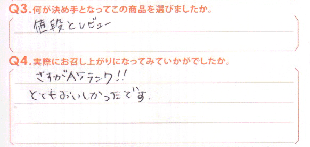 Q3.何が決め手となってこの商品を選びましたか。
値段とレビュー
Q4.実際にお召し上がりになってみていかがでしたか。
さすがA5ランク!!
とてもおいしかったです。